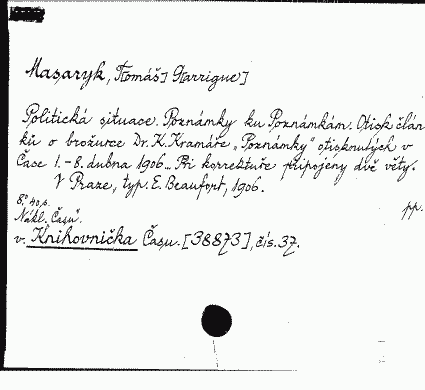 Masaryk, Tomáš [Garrigue]
Politická situace. Poznámky ku Poznámkám. Otisk člán
ků o brožurce Dr. K. Kramáře „Poznámky" otisknutých v
Čase 1.-8. dubna 1906... Při korrektuře připojeny dvě věty.
V Praze, typ. E. Beaufort, 1906.
8°, 40 s.
pp.
Nákl. „Času".
v. Knihovnička Času. [38873], čís. 37.